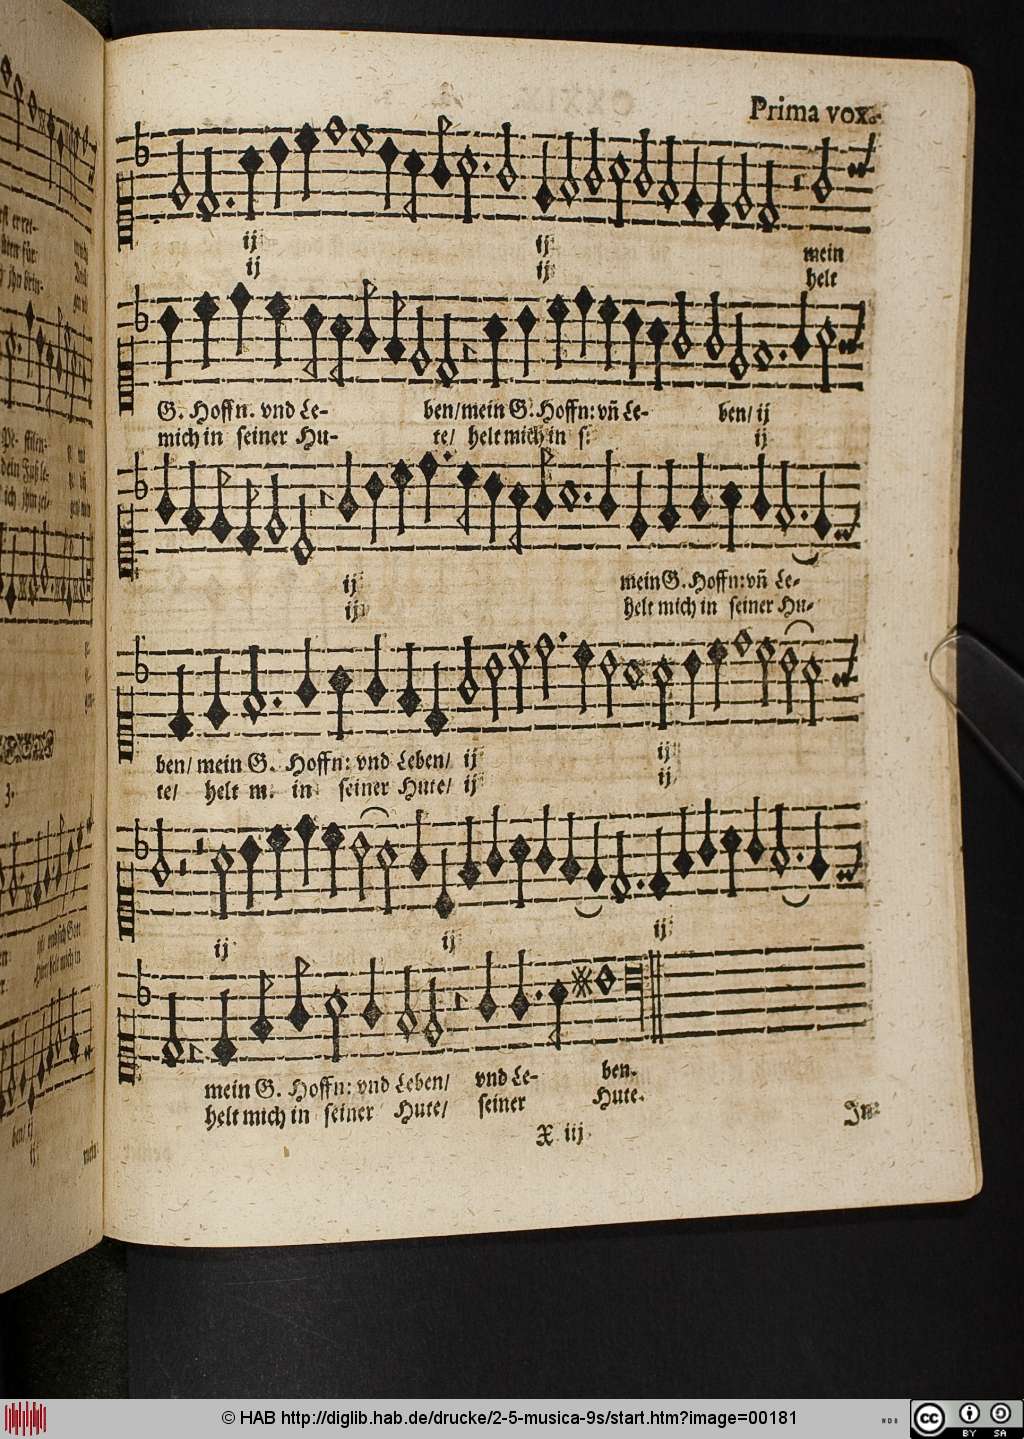 Prima vox.
ij ij mein
ij ij helt
G. Hoffn. vnd Le- ben/mein G. Hoffn: vn̄ Le- ben/ ij
mich in seiner Hu- te/ helt mich in s: ij
ij mein G. Hoffn: vn̄ Le-
ij helt mich in seiner Hu-
ben/ mein G. Hoffn: vnd Leben/ ij ij
te/ helt m. in seiner Hute/ ij ij
ij ij ij
mein G. Hoffn: vnd Leben/ vnd Le- ben.
helt mich in seiner Hute/ seiner Hute.
X iij
© HAB http://diglib.hab.de/drucke/2-5-musica-9s/start.htm?image=00181
cc BY SA